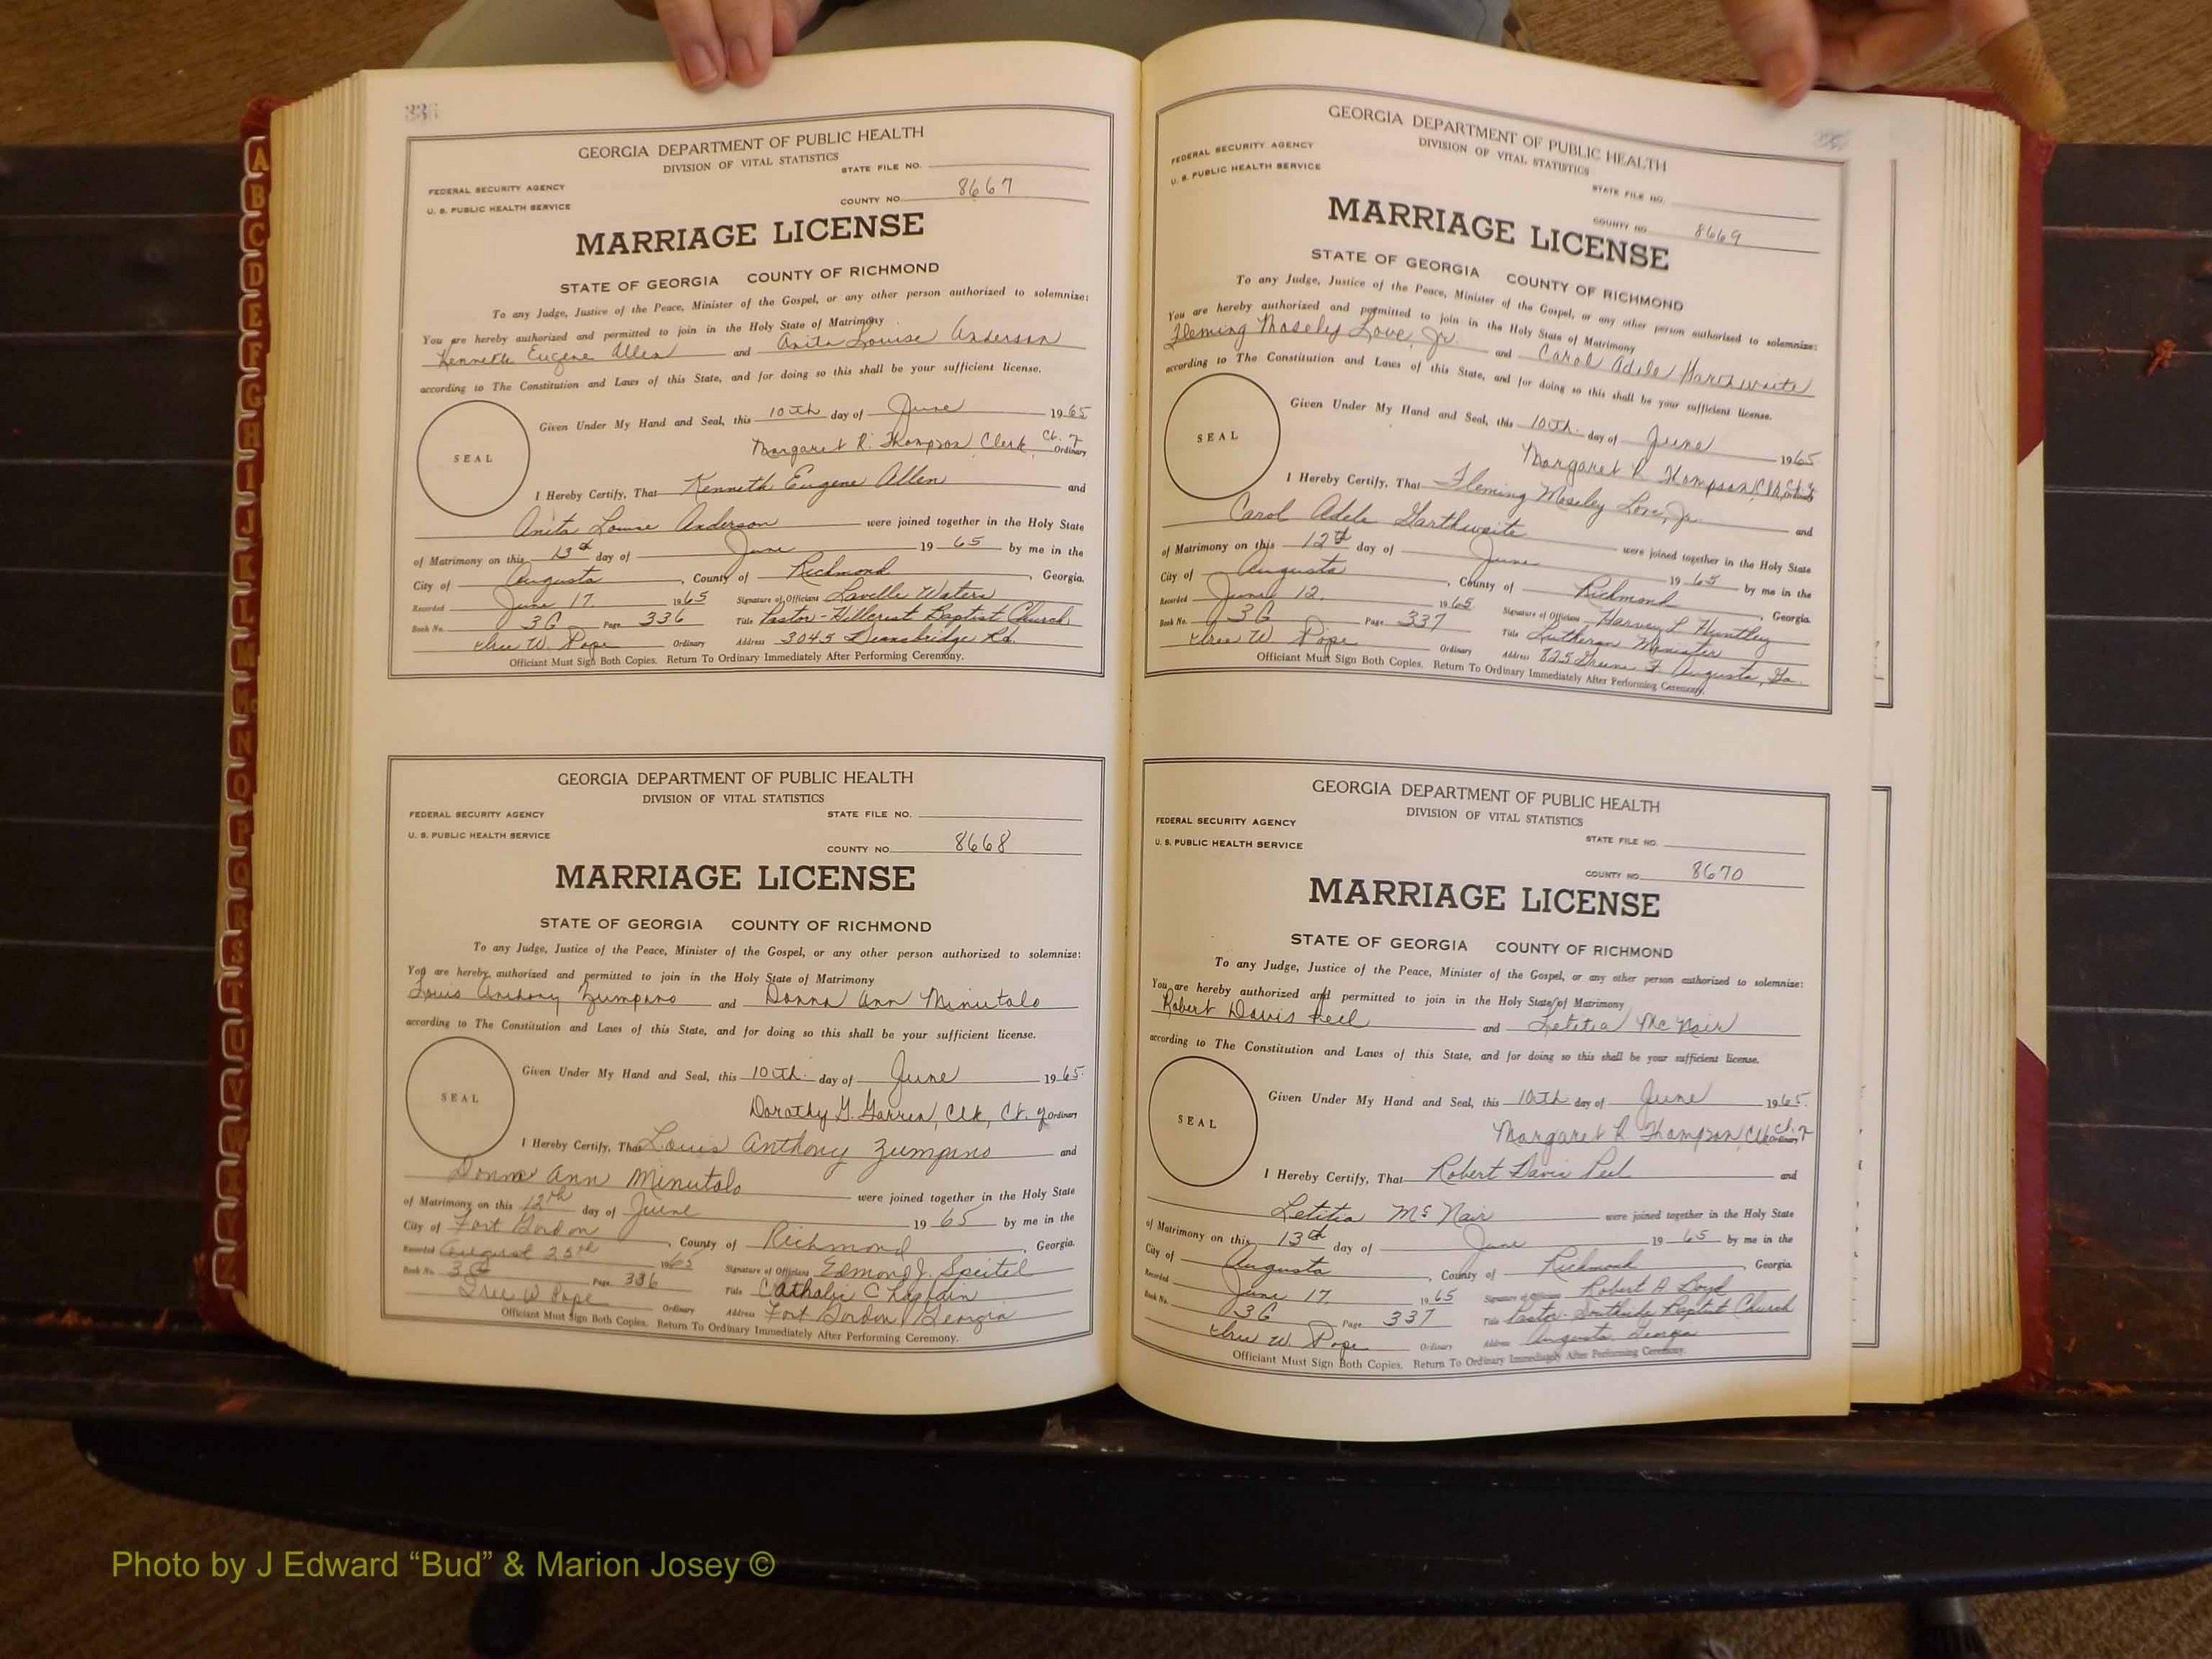 336
GEORGIA DEPARTMENT OF PUBLIC HEALTH
DIVISION OF VITAL STATISTICS
STATE FILE NO.
FEDERAL SECURITY AGENCY
U. S. PUBLIC HEALTH SERVICE
COUNTY NO. 8667
MARRIAGE LICENSE
STATE OF GEORGIA COUNTY OF RICHMOND
To any Judge, Justice of the Peace, Minister of the Gospel, or any other person authorized to solemnize:
You are hereby authorized and permitted to join in the Holy State of Matrimony
Kenneth Eugene Allen and Anita Louise Anderson
according to The Constitution and Laws of this State, and for doing so this shall be your sufficient license.
Given Under My Hand and Seal, this 10th day of June 1965
Margaret R. Thompson, Clerk, Ct. of Ordinary
SEAL
I Hereby Certify, That Kenneth Eugene Allen and
Anita Louise Anderson were joined together in the Holy State
of Matrimony on this 13th day of June 1965 by me in the
City of Augusta, County of Richmond, Georgia.
Recorded June 17. 1965 Signature of Officiant Lavelle Waters
Book No. 3G Page 336 Title Pastor - Hillcrest Baptist Church
W. Pope Ordinary Address 3045 Deansbridge Rd.
Officiant Must Sign Both Copies. Return To Ordinary Immediately After Performing Ceremony.
GEORGIA DEPARTMENT OF PUBLIC HEALTH
DIVISION OF VITAL STATISTICS
FEDERAL SECURITY AGENCY
STATE FILE NO.
U. S. PUBLIC HEALTH SERVICE
COUNTY NO. 8668
MARRIAGE LICENSE
STATE OF GEORGIA COUNTY OF RICHMOND
To any Judge, Justice of the Peace, Minister of the Gospel, or any other person authorized to solemnize:
You are hereby authorized and permitted to join in the Holy State of Matrimony
Louis Anthony Zumpino and Donna Ann Minutolo
according to The Constitution and Laws of this State, and for doing so this shall be your sufficient license.
Given Under My Hand and Seal, this 10th day of June 1965.
Dorothy G. Garren, Clk, Ct. of Ordinary
SEAL
I Hereby Certify, That Louis Anthony Zumpino and
Donna Ann Minutolo were joined together in the Holy State
of Matrimony on this 12th day of June 1965 by me in the
City of Fort Gordon, County of Richmond, Georgia.
Recorded August 25th 1965 Signature of Officiant Edmond J. Speitel
Book No. 3G Page 336 Title Catholic Chaplain
W Pope Ordinary Address Fort Gordon, Georgia
Officiant Must Sign Both Copies. Return To Ordinary Immediately After Performing Ceremony.
GEORGIA DEPARTMENT OF PUBLIC HEALTH
DIVISION OF VITAL STATISTICS
FEDERAL SECURITY AGENCY
U. S. PUBLIC HEALTH SERVICE
STATE FILE NO.
COUNTY NO. 8669
MARRIAGE LICENSE
STATE OF GEORGIA COUNTY OF RICHMOND
To any Judge, Justice of the Peace, Minister of the Gospel, or any other person authorized to solemnize:
You are hereby authorized and permitted to join in the Holy State of Matrimony
Fleming Mosely Love, Jr. and Carol Adele Harthwaite
according to The Constitution and Laws of this State, and for doing so this shall be your sufficient license.
Given Under My Hand and Seal, this 10th. day of June 1965.
Margaret R Thompson, Clk, Ct. of Ordinary
SEAL
I Hereby Certify, That Fleming Moseley Love, Jr. and
Carol Adele Garthwaite were joined together in the Holy State
of Matrimony on this 12th day of June 1965 by me in the
City of Augusta, County of Richmond, Georgia.
Recorded June 12, 1965 Signature of Officiant Harvey L Huntley
Book No. 3G Page 337 Title Lutheran Minister
W. Pope Ordinary Address 825 Greene St. Augusta, Ga.
Officiant Must Sign Both Copies. Return To Ordinary Immediately After Performing Ceremony.
GEORGIA DEPARTMENT OF PUBLIC HEALTH
DIVISION OF VITAL STATISTICS
FEDERAL SECURITY AGENCY
STATE FILE NO.
U. S. PUBLIC HEALTH SERVICE
COUNTY NO. 8670
MARRIAGE LICENSE
STATE OF GEORGIA COUNTY OF RICHMOND
To any Judge, Justice of the Peace, Minister of the Gospel, or any other person authorized to solemnize:
You are hereby authorized and permitted to join in the Holy State of Matrimony
Robert Davis Peel and Letitia McNair
according to The Constitution and Laws of this State, and for doing so this shall be your sufficient license.
Given Under My Hand and Seal, this 10th day of June 1965.
Margaret R Thompson, Clk Ct. of Ordinary
SEAL
I Hereby Certify, That Robert Davis Peel and
Letitia McNair were joined together in the Holy State
of Matrimony on this 13th day of June 1965 by me in the
City of Augusta, County of Richmond, Georgia.
Recorded June 17. 1965 Signature of Officiant Robert A Boyd
Book No. 3G Page 337 Title Pastor - Southside Baptist Church
W. Pope Ordinary Address Augusta, Georgia
Officiant Must Sign Both Copies. Return To Ordinary Immediately After Performing Ceremony.
A
B
C
D
E
F
G
H
I
J
K
L
M
Mc
N
O
P
Q
R
S
T
U
V
W
Y
Z
Photo by J Edward “Bud” & Marion Josey ©